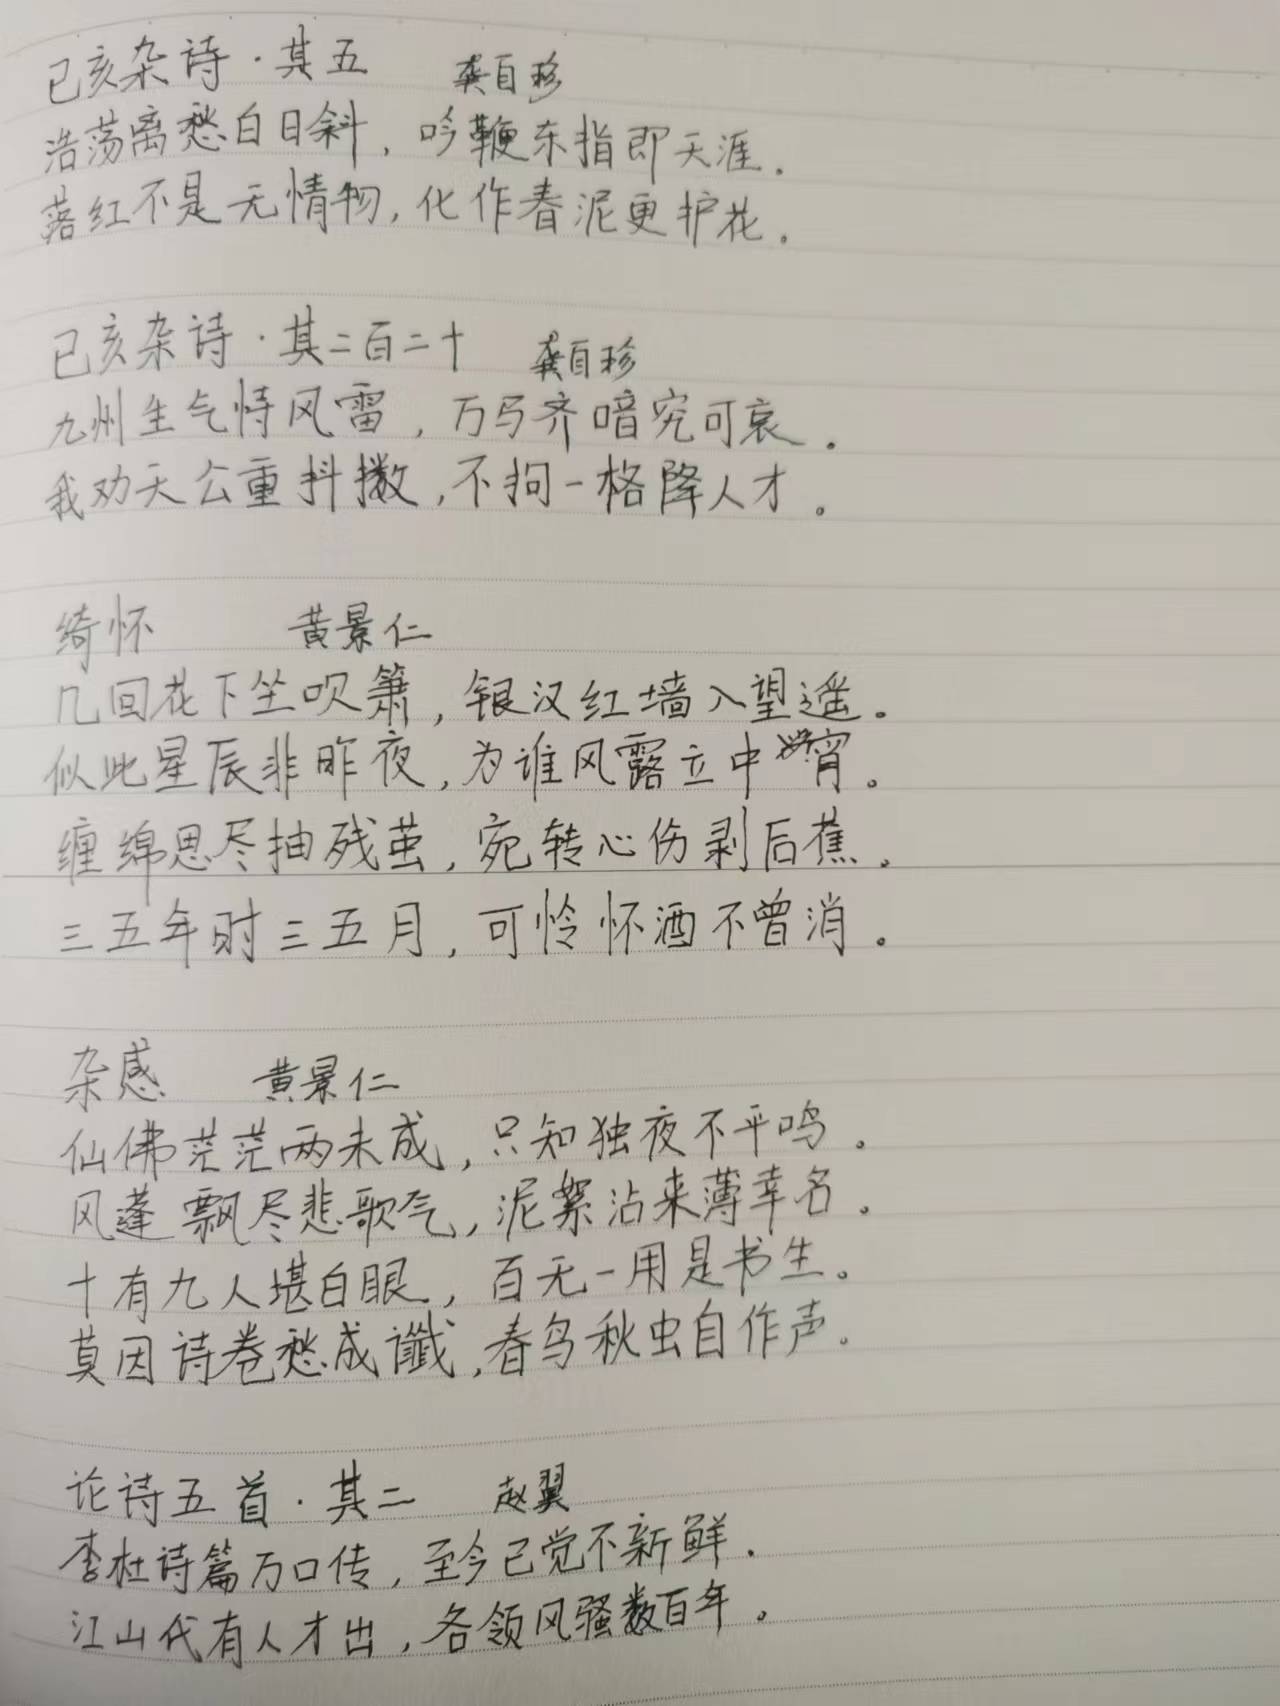 己亥杂诗·其五 龚自珍
浩荡离愁白日斜，吟鞭东指即天涯。
落红不是无情物，化作春泥更护花。
己亥杂诗·其二百二十 龚自珍
九州生气恃风雷，万马齐喑究可哀。
我劝天公重抖擞，不拘一格降人才。
绮怀 黄景仁
几回花下坐吹箫，银汉红墙入望遥。
似此星辰非昨夜，为谁风露立中宵。
缠绵思尽抽残茧，宛转心伤剥后蕉。
三五年时三五月，可怜怀酒不曾消。
杂感 黄景仁
仙佛茫茫两未成，只知独夜不平鸣。
风蓬飘尽悲歌气，泥絮沾来薄幸名。
十有九人堪白眼，百无一用是书生。
莫因诗卷愁成谶，春鸟秋虫自作声。
论诗五首·其二 赵翼
李杜诗篇万口传，至今已觉不新鲜。
江山代有人才出，各领风骚数百年。